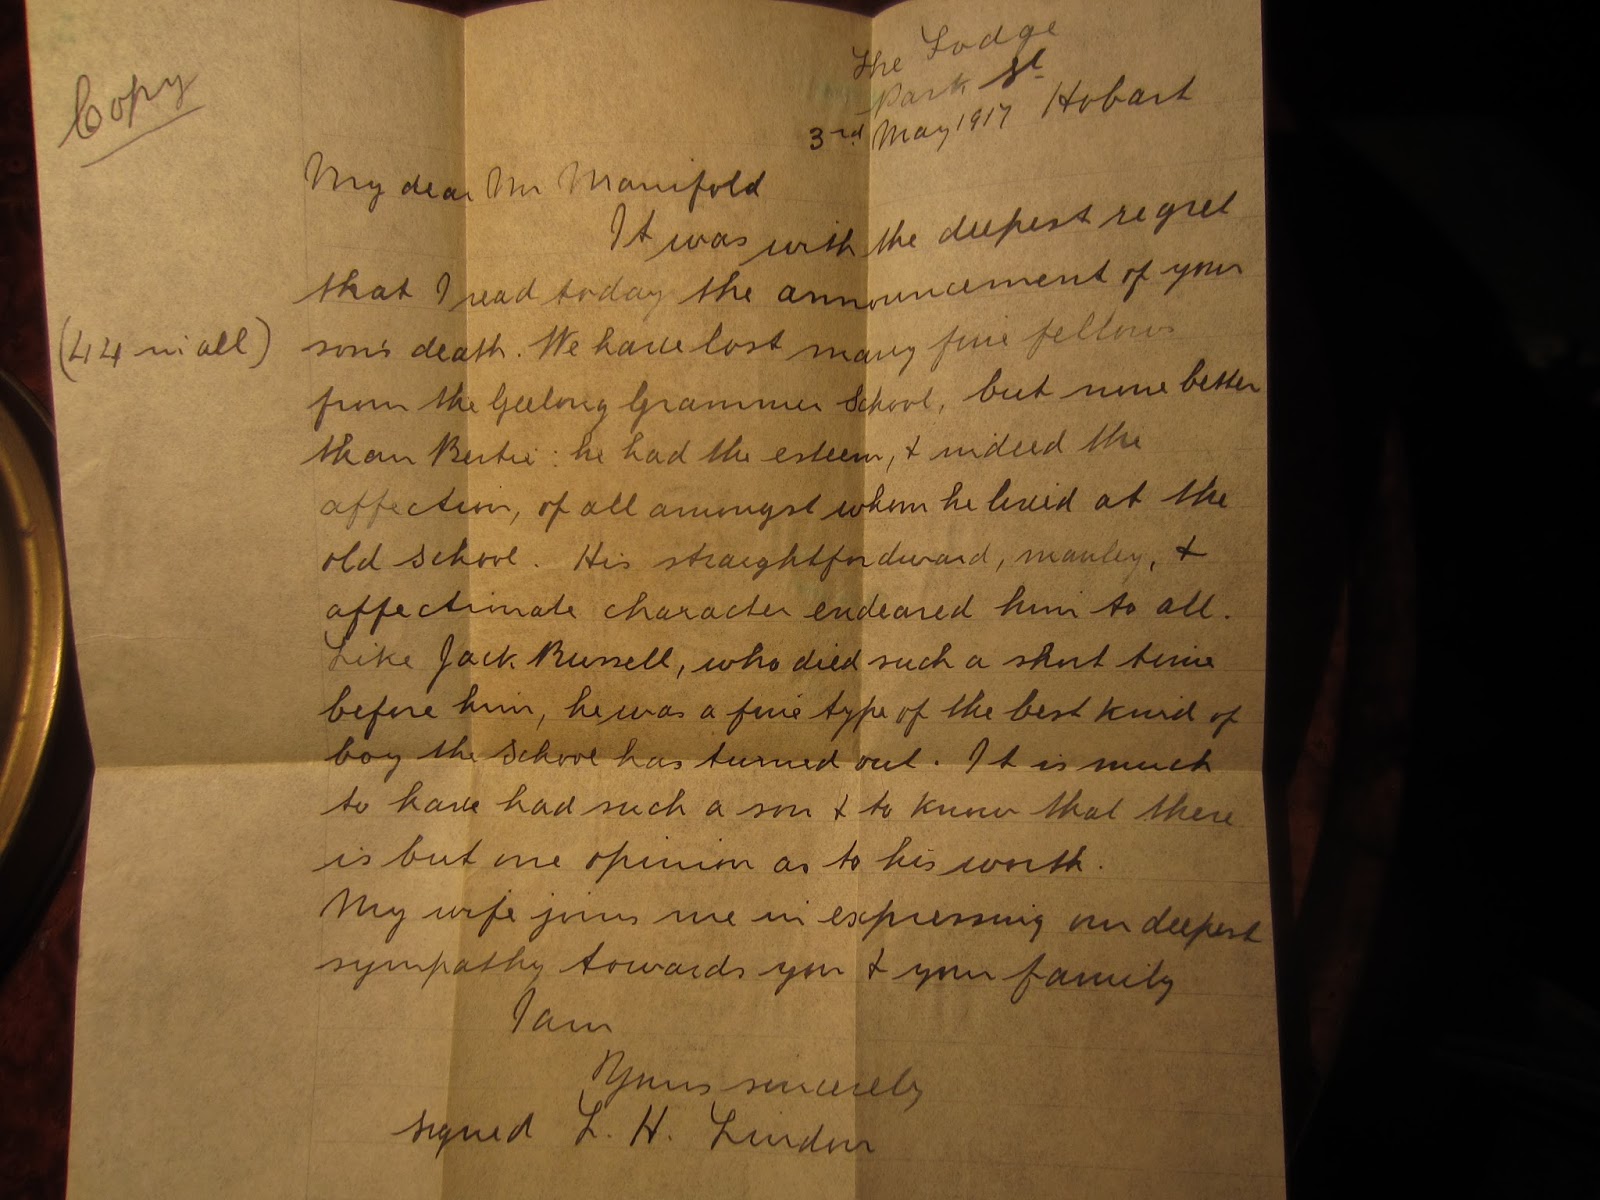 Copy
The Lodge
Park St
3rd May 1917 Hobart
My dear Mr Manifold
It was with the deepest regret
that I read today the announcement of your
son's death. We have lost many fine fellows
(44 in all)
from the Geelong Grammer School, but none better
than Bertie: he had the esteem, & indeed the
affection, of all amongst whom he lived at the
old school. His straightfordward, manley, &
affectionate character endeared him to all.
Like Jack Russell, who died such a short time
before him, he was a fine type of the best kind of
boy the School has turned out. It is much
to have had such a son & to know that there
is but one opinion as to his worth.
My wife joins me in expressing our deepest
sympathy towards you & your family
I am
Yours sincerely
signed L. H. Lindon